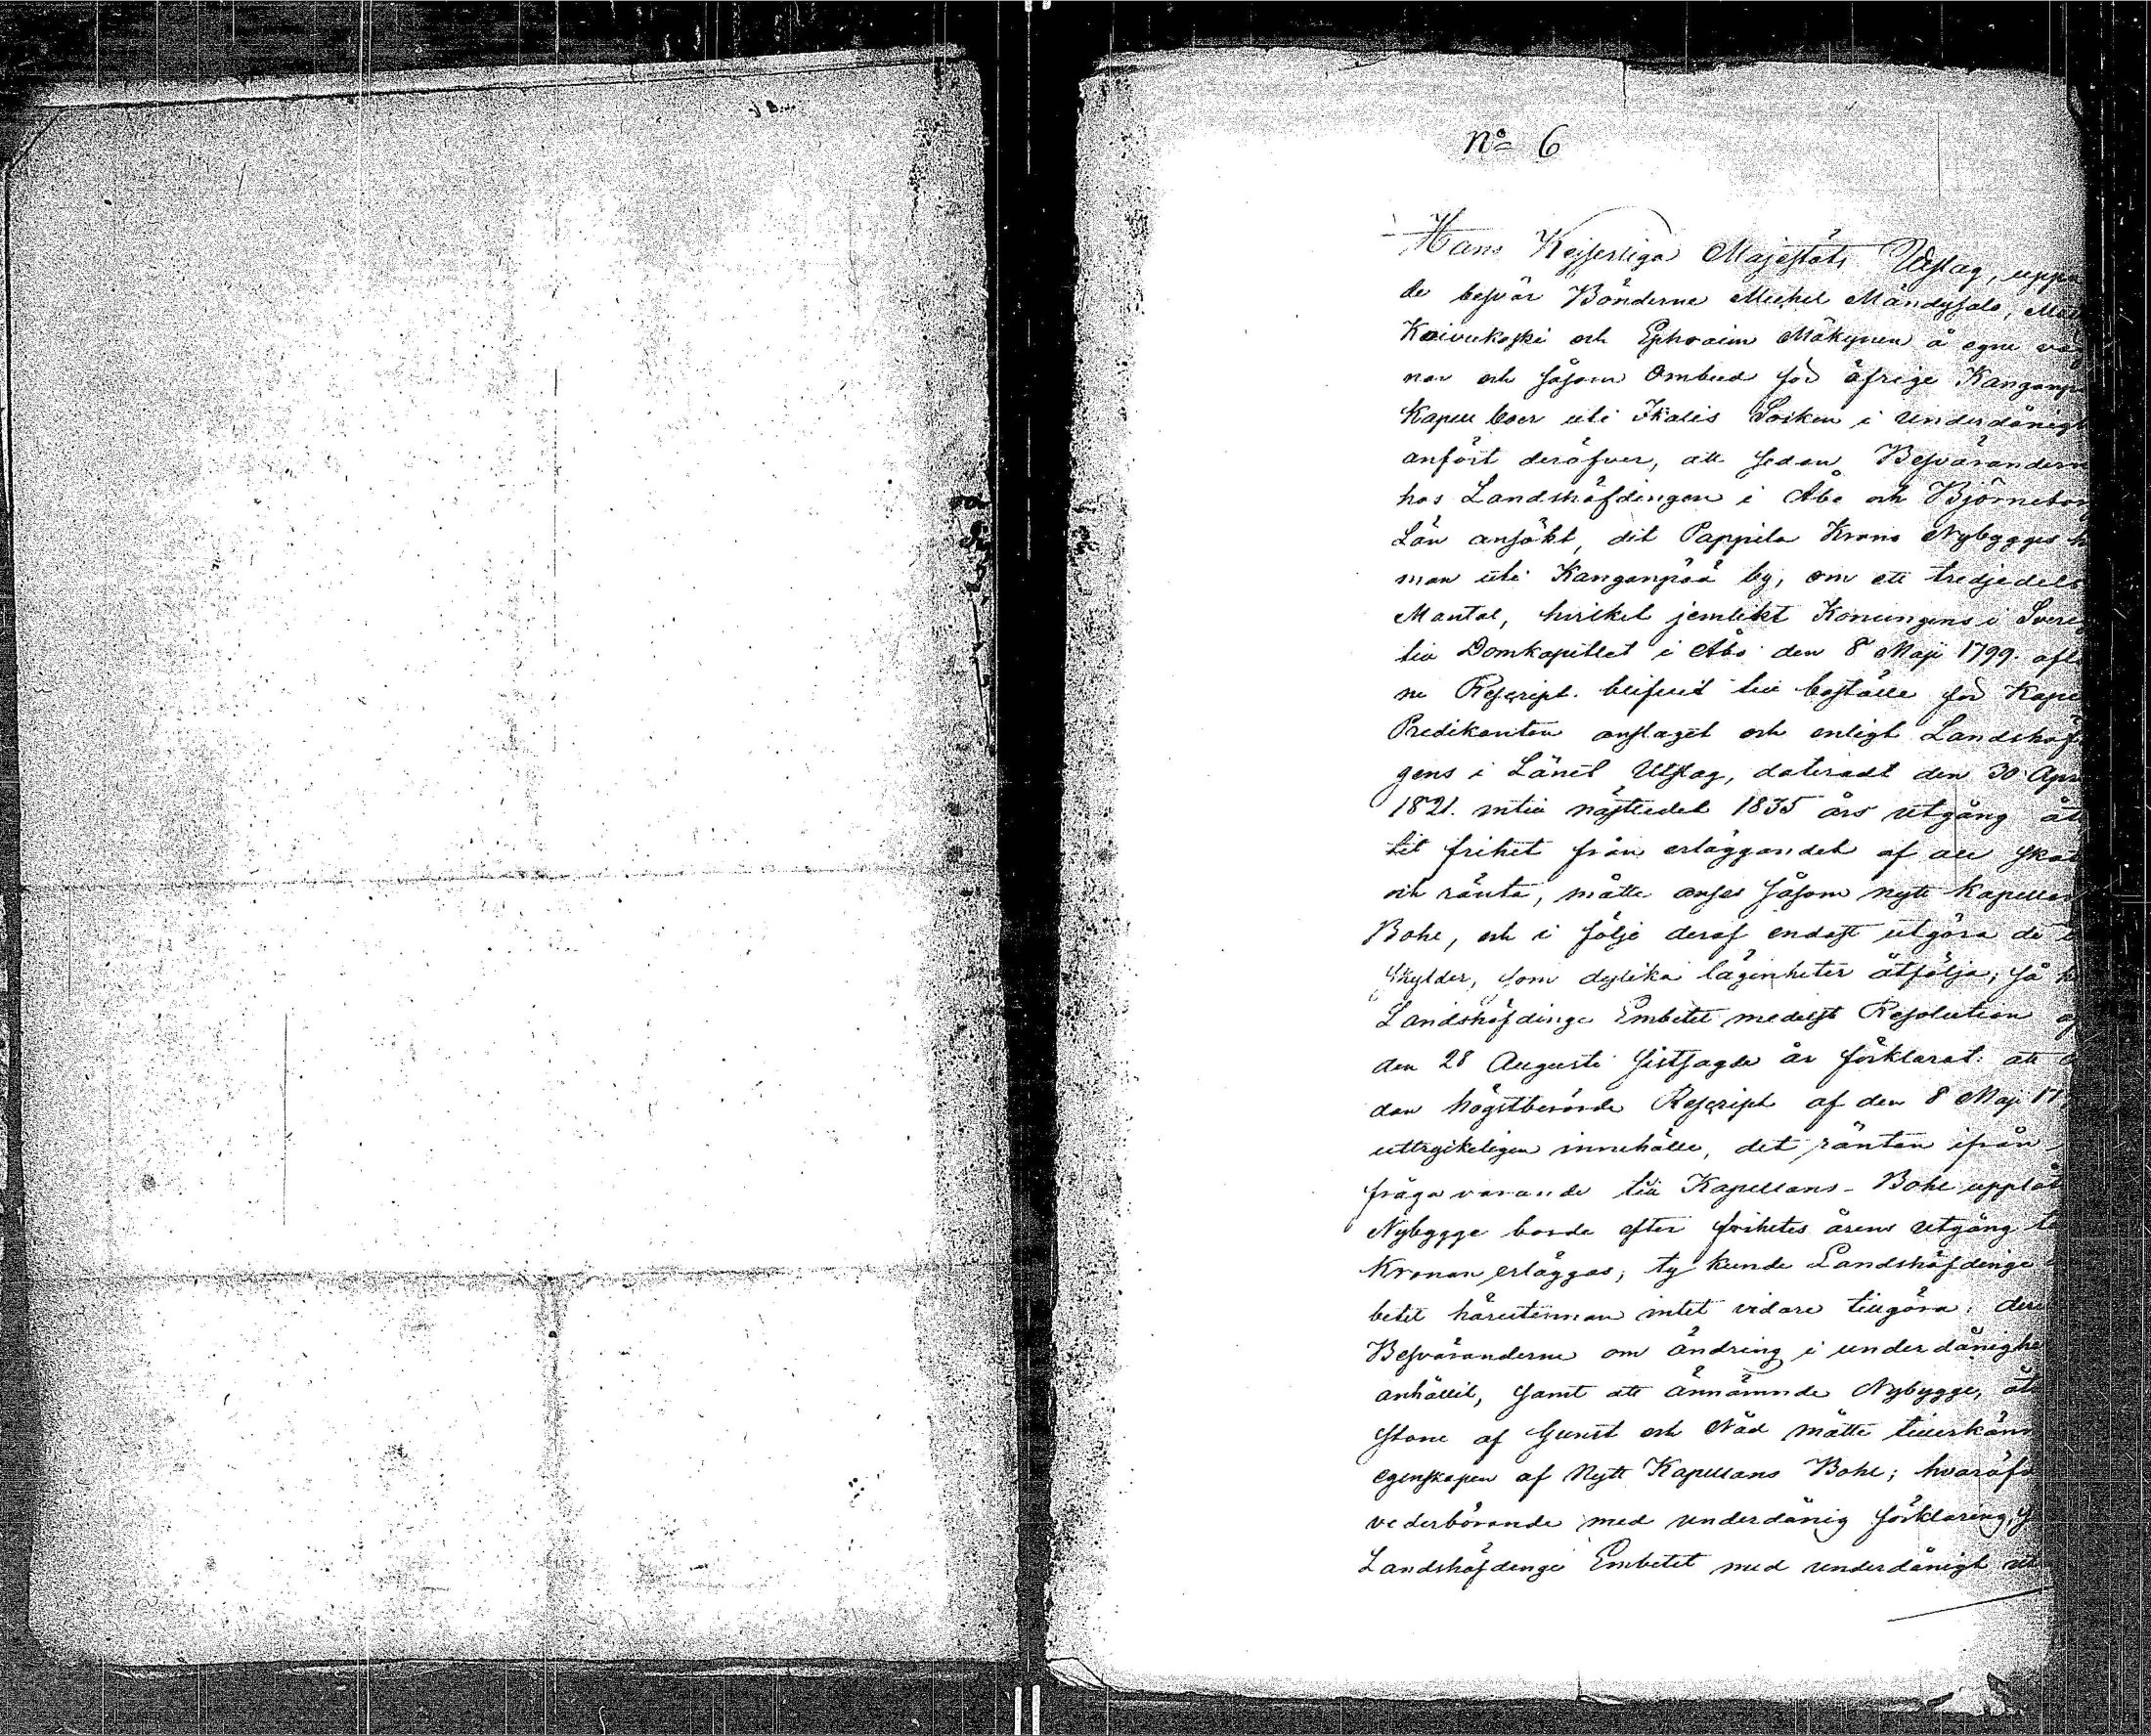 No 6
Hans Kejserliga Majestäts Utslag, uppå
de besvär Bönderne Michel Mändysalo,
Koivukoski och Ephraim Mäkynen å egne
nar och såsom Ombud för öfrige Kanganp
Kapell boer uti Ikalis Socken i Underdånigh
anfört deröfver, att sedan Besvärandern
hos Landshöfdingen i Åbo och Björnebor
Län ansökt, det Pappila Krono Nybygges
man uti Kanganpää by, om ett tredjedels
Mantal, hvilket jemlikt Konungens i Sveri
till Domkapitlet i Åbo den 8 Maji 1799. afl
ne Rescript. blifvit till boställe för Kape
Predikanten anslaget och enligt Landshöf
gens i Länet Utslag, dateradt den 30 Apr
1821. intill nästledet 1835 års utgång åt
tit frihet från erläggandet af all skat
och ränta, måtte anses såsom nytt Kapellan
Bohl, och i följe deraf endast utgöra de
skylder, som dylika lägenheter åtfölja; så
Landshöfdinge Embetet medelst Resolution af
den 28 Augusti sistsagde år förklarat: att
dan högstberörde Rescript af den 8 Maji 17
uttryckeligen innehölle, det räntan ifrån
fråga varande till Kapellans-Bohl upplåt
Nybygge borde efter frihets årens utgång
Kronan erläggas; ty kunde Landshöfdinge
betet härutinnan intet vidare tillgöra.
Besväranderne om ändring i underdånighe
anhållit, samt att ännämnde Nybygge, åt
stone af Gunst och Nåd måtte tillerkänn
egenskapen af Nytt Kapellans Bohl; hvaröfv
vederbörande med underdånig förklaring,
Landshöfdinge Embetet med underdånigt